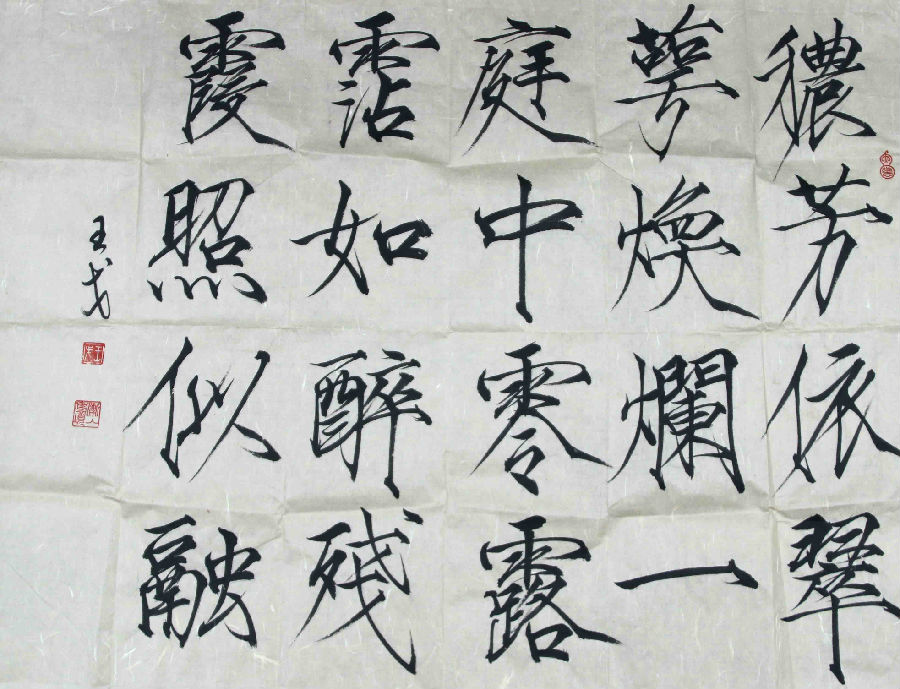 穠芳依翠
萼煥爛一
庭中零露
霑如醉殘
霞照似融
王